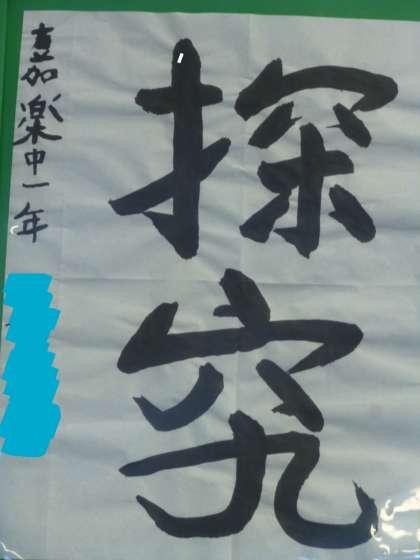 探究
嘉楽中一年